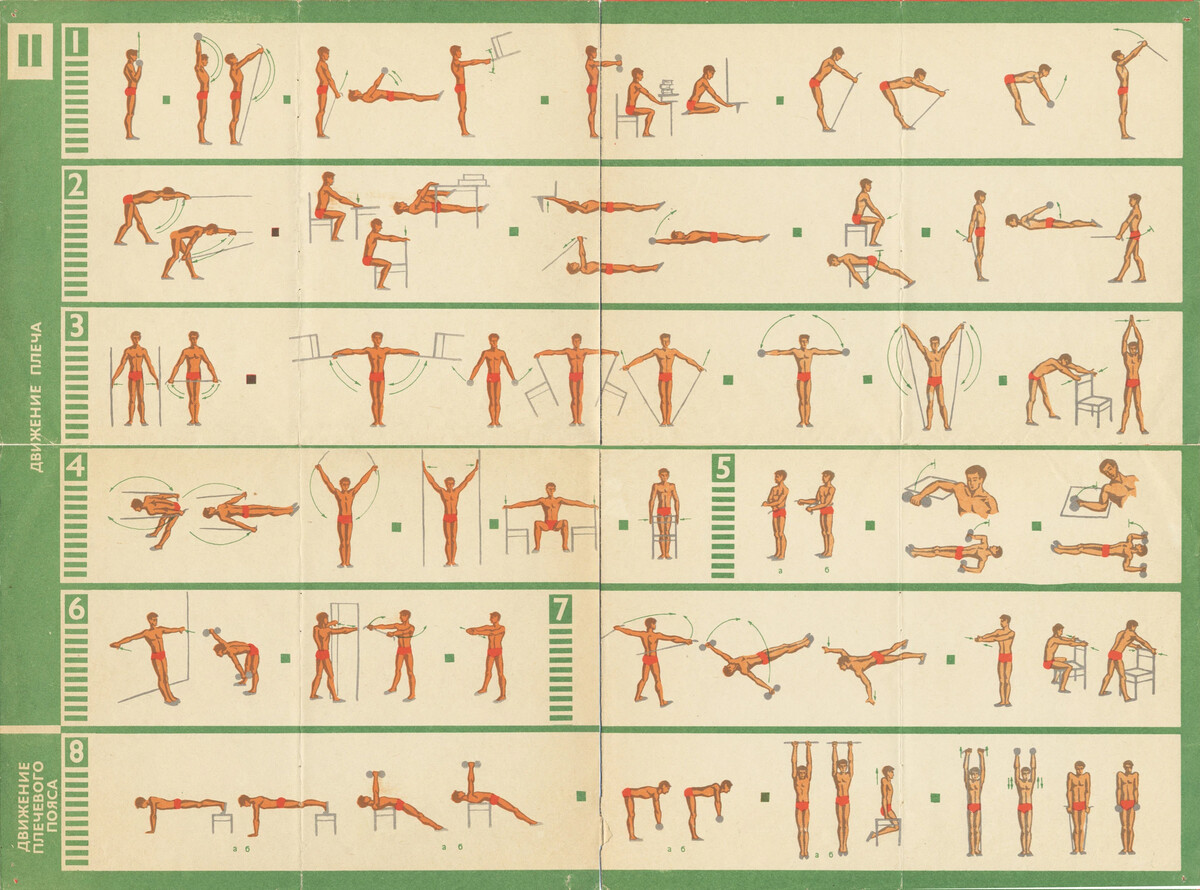 II
1
2
3
ДВИЖЕНИЕ ПЛЕЧА
4
5
а б
6
7
8
ДВИЖЕНИЕ
ПЛЕЧЕВОГО
ПОЯСА
а б
а б
а б
а б